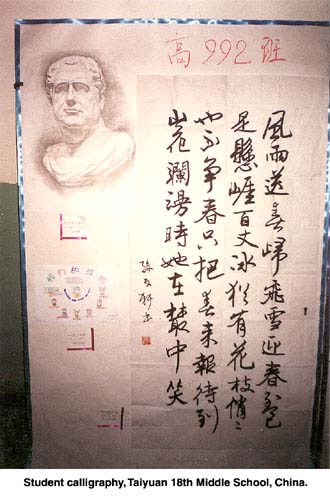 高992班
風雨送春歸飛雪迎春到已
是懸崖百丈冰猶有花枝俏〻
也不争春只把春来報待到
山花瀾漫時她在叢中笑
Student calligraphy, Taiyuan 18th Middle School, China.